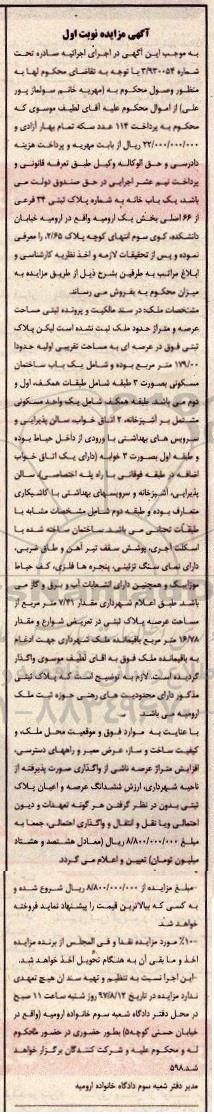 آگهی مزایده نوبت اول
به موجب این آگهی در اجرای اجرائیه صادره تحت
شماره ۳/۹۳۰۰۵۴ با توجه به تقاضای محکوم لها به
منظور وصول محکوم به (مهریه خانم سولماز پور
علی) از اموال محکوم علیه آقای لطیف موسوی که
محکوم به پرداخت ۱۱۴ عدد سکه تمام بهار آزادی و
۲۲/۰۰۰/۰۰۰ ریال از بابت مهریه و پرداخت هزینه
دادرسی و حق الوکاله وکیل طبق تعرفه قانونی و
پرداخت نیم عشر اجرایی در حق صندوق دولت می
باشد، یک باب خانه به شماره پلاک ثبتی ۲۴ فرعی
از ۶۶ اصلی بخش یک ارومیه واقع در ارومیه خیابان
دانشکده، کوی سوم انتهای کوچه پلاک ۲/۶۵، را معرفی
نموده و پس از تحقیقات لازمه و اخذ نظریه کارشناسی و
ابلاغ مراتب به طرفین بشرح ذیل از طریق مزایده به
میزان محکوم به بفروش می رساند.
مشخصات ملک: در سند مالکیت و پرونده ثبتی مساحت
عرصه و متراژ حدود ملک ثبت نشده است لیکن پلاک
ثبتی فوق در عرصه ای به مساحت تقریبی اولیه حدودا
۱۷۹/۰۰ متر مربع بوده و شامل یک باب ساختمان
مسکونی بصورت ۳ طبقه شامل طبقات همکف، اول و
دوم می باشد. طبقه همکف شامل یک واحد مسکونی
مشتمل بر آشپزخانه، ۲ اتاق خواب، سالن پذیرایی و
سرویس های بهداشتی با ورودی از داخل حیاط بوده
و طبقه اول بصورت ۳ خوابه (دارای یک اتاق خواب
اضافه در طبقه فوقانی با راه پله اختصاصی) سالن
پذیرایی، آشپزخانه و سرویسهای بهداشتی با کاشیکاری
متعارف بوده و طبقه دوم شامل مشخصات مشابه با
طبقات تحتانی می باشد. ساختمان ساخته شده با
اسکلت آجری، پوشش سقف تیر آهن و طاق ضربی،
دارای نمای سنگ تزئینی، پنجره ها فلزی، کف حیاط
موزاییک و همچنین دارای انشعابات آب و برق و گاز می
باشد. طبق اعلام شهرداری مقدار ۷/۳۱ متر مربع از
مساحت عرصه پلاک ثبتی در تعریض شوارع و مقدار
۱۶/۷۸ متر مربع باقیمانده ملک شهرداری جهت ادغام
به باقیمانده ملک فوق به آقای لطیف موسوی واگذار
گردیده است. لازم به توضیح است که پلاک ثبتی
مذکور دارای محدودیت های رهنی حوزه ثبت ملک
ارومیه می باشد.
با عنایت به موارد فوق و موقعیت محل ملک، و
کیفیت ساخت و ساز، عرض معبر و راههای دسترسی،
افزایش متراژ عرصه ناشی از واگذاری صورت پذیرفته از
ناحیه شهرداری، ارزش ششدانگ عرصه و اعیان پلاک
ثبتی بدون در نظر گرفتن هر گونه تعهدات و دیون
احتمالی ویا نقل و انتقال و واگذاری احتمالی، جمعا به
مبلغ ۸/۸۰۰/۰۰۰/۰۰۰ ریال (معادل هشتصد و هشتاد
میلیون تومان) تعیین و اعلام می گردد.
-مبلغ مزایده از ۸/۸۰۰/۰۰۰/۰۰۰ ریال شروع شده و
به کسی که بالاترین قیمت را پیشنهاد نماید فروخته
خواهد شد.
-۱۰٪ مورد مزایده نقدا و فی المجلس از برنده مزایده
اخذ و ما بقی آن به هنگام تحویل اخذ خواهد شد.
-این اجرا نسبت به تنظیم و تهیه سند آن هیچ تعهدی
ندارد مزایده در تاریخ ۹۷/۸/۱۲ روز شنبه ساعت ۱۱ صبح
در محل دفتر دادگاه شعبه سوم خانواده ارومیه (واقع در
خیابان حسنی کوچه۵) بطور حضوری در حضور محکوم
له و محکوم علیه و شرکت کنندگان برگزار خواهد
شد.۵۹۸
مدیر دفتر شعبه سوم دادگاه خانواده ارومیه